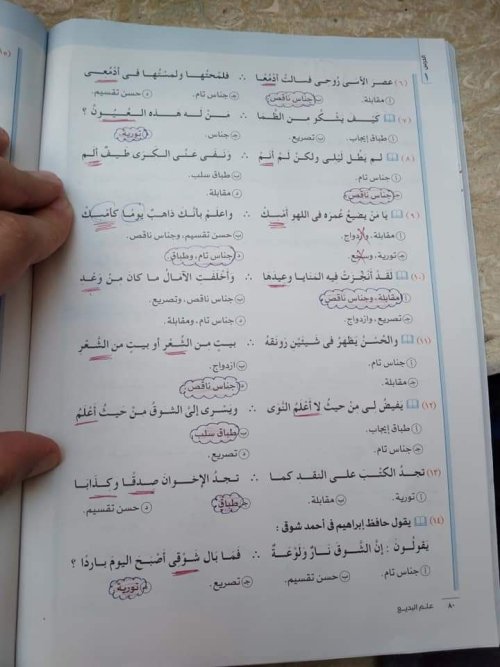 الدرس
(٦) عصر الأسى روحى فسالت أدمعًا ∴ فلمحتها ولمستها فى أدمعى
أ مقابلة. ب جناس ناقص. جـ جناس تام. د حسن تقسيم.
(٧) كيف يشكر من الظما ∴ من له هذه العيون ؟
أ طباق إيجاب. ب تصريع. جـ جناس. د تورية.
(٨) لم يطل ليلى ولكن لم أنم ∴ ونفى عنى الكرى طيف ألم
أ جناس تام. ب طباق سلب.
جـ جناس ناقص. د مقابلة.
(٩) يا من يضيع عمره فى اللهو أمسك ∴ واعلم بأنك ذاهب يومًا كأمسك
أ مقابلة، وازدواج. ب حسن تقسيم، وجناس ناقص.
جـ تورية، وسجع. د جناس تام، وطباق.
(١٠) لقد أنجزت فيه المنايا وعيدها ∴ وأخلفت الآمال ما كان من وعد
أ مقابلة، وجناس ناقص. ب جناس ناقص، وتصريع.
جـ تصريع، وازدواج. د جناس تام، ومقابلة.
(١١) والحسن يظهر فى شيئين رونقه ∴ بيت من الشعر أو بيت من الشعر
أ جناس تام. ب ازدواج.
جـ مقابلة. د جناس ناقص.
(١٢) يفيض لى من حيث لا أعلم النوى ∴ ويسرى إلى الشوق من حيث أعلم
أ طباق إيجاب. ب طباق سلب.
جـ جناس تام. د تصريع.
(١٣) تجد الكتب على النقد كما ∴ تجد الإخوان صدقًا وكذابا
أ تورية. ب مقابلة. جـ طباق. د حسن تقسيم.
(١٤) يقول حافظ إبراهيم فى أحمد شوقى :
يقولون : إن الشوق نار ولوعة ∴ فما بال شوقى أصبح اليوم باردا ؟
أ جناس تام. ب حسن تقسيم. جـ تصريع. د تورية.
٨٠ علم البديع